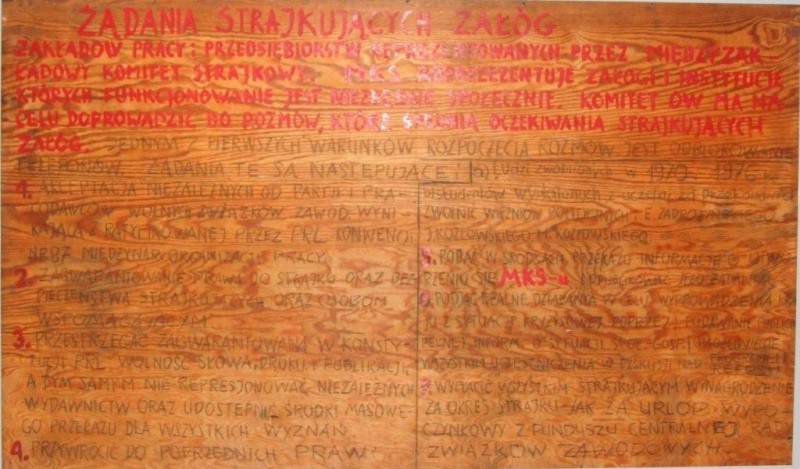 ŻĄDANIA STRAJKUJĄCYCH ZAŁÓG
ZAKŁADÓW PRACY I PRZEDSIĘBIORSTW REPREZENTOWANYCH PRZEZ MIĘDZYZAK-
ŁADOWY KOMITET STRAJKOWY. MKS REPREZENTUJE ZAŁOGI I INSTYTUCJE
KTÓRYCH FUNKCJONOWANIE JEST NIEZBĘDNE SPOŁECZNIE. KOMITET ÓW MA NA
CELU DOPROWADZIĆ DO ROZMÓW, KTÓRE SPEŁNIĄ OCZEKIWANIA STRAJKUJĄCYCH
ZAŁÓG. JEDNYM Z PIERWSZYCH WARUNKÓW ROZPOCZĘCIA ROZMÓW JEST ODBLOKOWANIE
TELEFONÓW. ŻĄDANIA TE SĄ NASTĘPUJĄCE:
1. AKCEPTACJA NIEZALEŻNYCH OD PARTII I PRA-
CODAWCÓW WOLNYCH ZWIĄZKÓW ZAWOD. WYNI-
KAJĄCA Z RATYFIKOWANEJ PRZEZ PRL KONWENCJI
NR 87 MIĘDZYNAR. ORGANIZACJI PRACY.
2. ZAGWARANTOWANIE PRAWA DO STRAJKU ORAZ BEZ-
PIECZEŃSTWA STRAJKUJĄCYCH ORAZ OSOBOM
WSPOMAGAJĄCYM
3. PRZESTRZEGAĆ ZAGWARANTOWANĄ W KONSTY-
TUCJI PRL WOLNOŚĆ SŁOWA, DRUKU I PUBLIKACJI
A TYM SAMYM NIE REPRESJONOWAĆ NIEZALEŻNYCH
WYDAWNICTW ORAZ UDOSTĘPNIĆ ŚRODKI MASOWE-
GO PRZEKAZU DLA WSZYSTKICH WYZNAŃ
4. PRZYWRÓCIĆ DO POPRZEDNICH PRAW:
a) ludzi zwolnionych w 1970 1976
studentów wydalonych z uczelni za przekonania
ZWOLNIĆ WIĘŹNIÓW POLITYCZNYCH: E. ZADROŻYŃSKIEGO
J. KOZŁOWSKIEGO M. KOZŁOWSKIEGO
5. PODAĆ W ŚRODKACH PRZEKAZU INFORMACJE O UTWO-
RZENIU SIĘ MKS-u I PUBLIKOWAĆ JEGO ŻĄDANIA
6. PODJĄĆ REALNE DZIAŁANIA W CELU WYPROWADZENIA
Z SYTUACJI KRYZYSOWEJ POPRZEZ:
PEŁNEJ INFORM. O SYTUACJI SPOŁ-GOSP. I UMOŻLIWIENIE
UCZESTNICZENIA W DYSKUSJI NAD PROGRAMEM
REFORM
7. WYPŁACIĆ WSZYSTKIM STRAJKUJĄCYM WYNAGRODZENIE
ZA OKRES STRAJKU - JAK ZA URLOP WYPO-
CZYNKOWY Z FUNDUSZU CENTRALNEJ RADY
ZWIĄZKÓW ZAWODOWYCH.